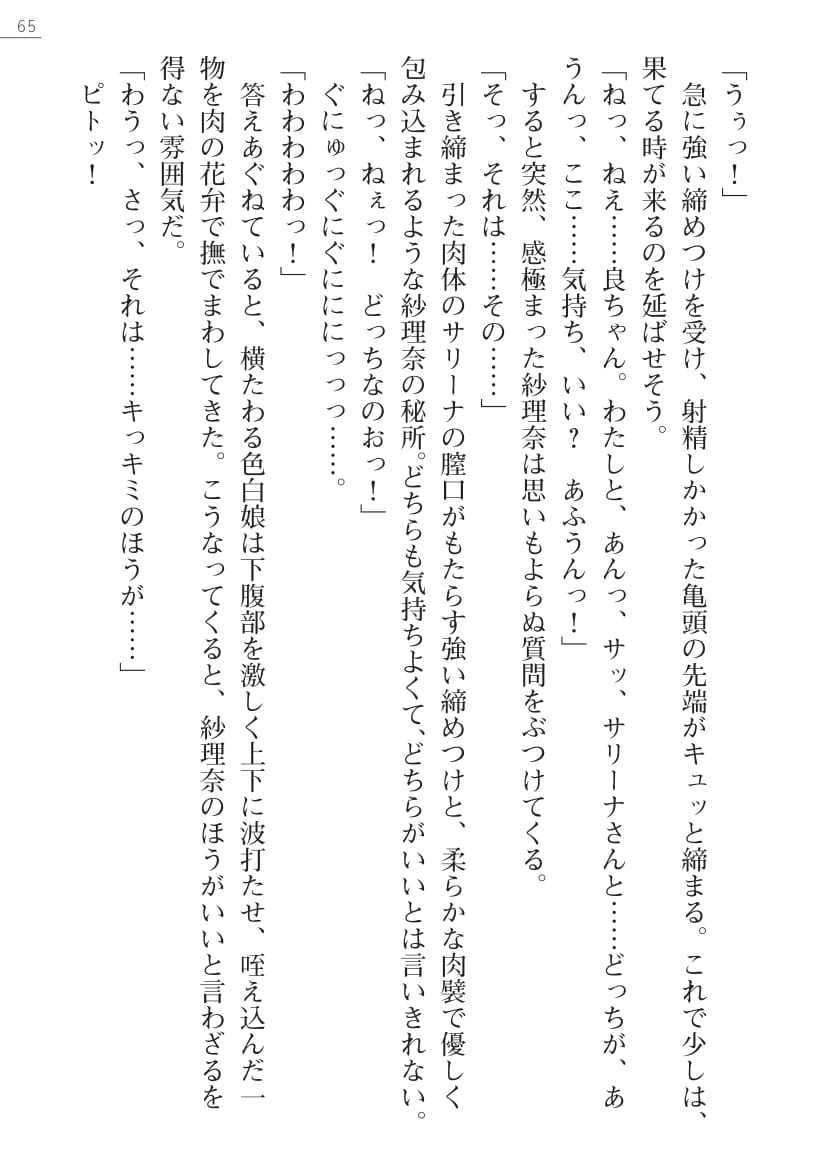 65
「うぅっ！」
　急に強い締めつけを受け、射精しかかった亀頭の先端がキュッと締まる。これで少しは、
果てる時が来るのを延ばせそう。
「ねっ、ねえ……良ちゃん。わたしと、あんっ、サッ、サリーナさんと……どっちが、あ
うんっ、ここ……気持ち、いい？　あふうんっ！」
　すると突然、感極まった紗理奈は思いもよらぬ質問をぶつけてくる。
「そっ、それは……その……」
　引き締まった肉体のサリーナの膣口がもたらす強い締めつけと、柔らかな肉襞で優しく
包み込まれるような紗理奈の秘所。どちらも気持ちよくて、どちらがいいとは言いきれない。
「ねっ、ねぇっ！　どっちなのおっ！」
　ぐにゅっぐにぐにににっっっ……。
「わわわわわっ！」
　答えあぐねていると、横たわる色白娘は下腹部を激しく上下に波打たせ、咥え込んだ一
物を肉の花弁で撫でまわしてきた。こうなってくると、紗理奈のほうがいいと言わざるを
得ない雰囲気だ。
「わうっ、さっ、それは……キっキミのほうが……」
　ピトッ！